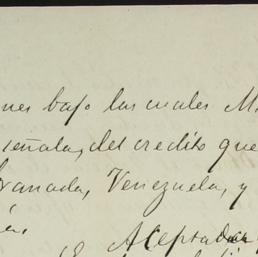 nes bajo las cuales M
señala, del credito que
ranada, Venezuela, y
Aceptada